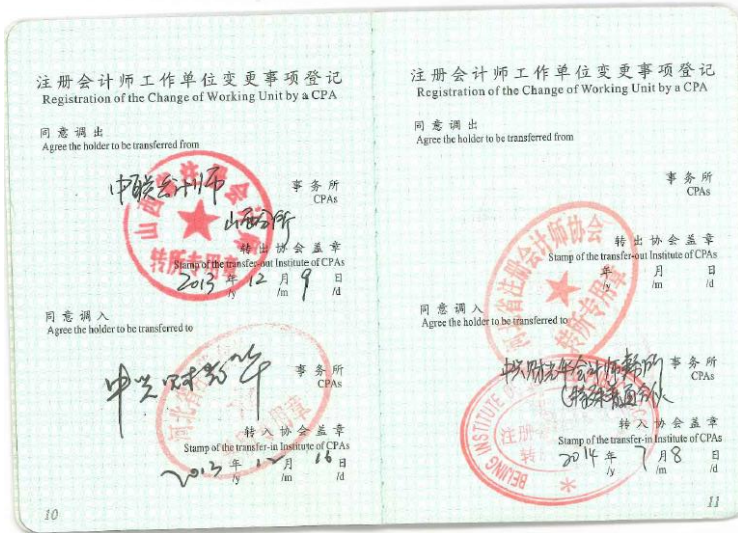 注册会计师工作单位变更事项登记
Registration of the Change of Working Unit by a CPA
同意调出
Agree the holder to be transferred from
中联会计师
事务所
CPAs
山西分所
转出协会盖章
Stamp of the transfer-out Institute of CPAs
2013 年 12 月 9 日
/y /m /d
同意调入
Agree the holder to be transferred to
中兴财光华
事务所
CPAs
转入协会盖章
Stamp of the transfer-in Institute of CPAs
2013 年 12 月 16 日
/y /m /d
转所专用章
10
注册会计师工作单位变更事项登记
Registration of the Change of Working Unit by a CPA
同意调出
Agree the holder to be transferred from
事务所
CPAs
转出协会盖章
Stamp of the transfer-out Institute of CPAs
年 月 日
/y /m /d
河北省注册会计师协会
转所专用章
同意调入
Agree the holder to be transferred to
中兴财光华会计师事务所 事务所
CPAs
(特殊普通合伙
转入协会盖章
Stamp of the transfer-in Institute of CPAs
2014 年 7 月 8 日
/y /m /d
BEIJING INSTITUTE
注册
11